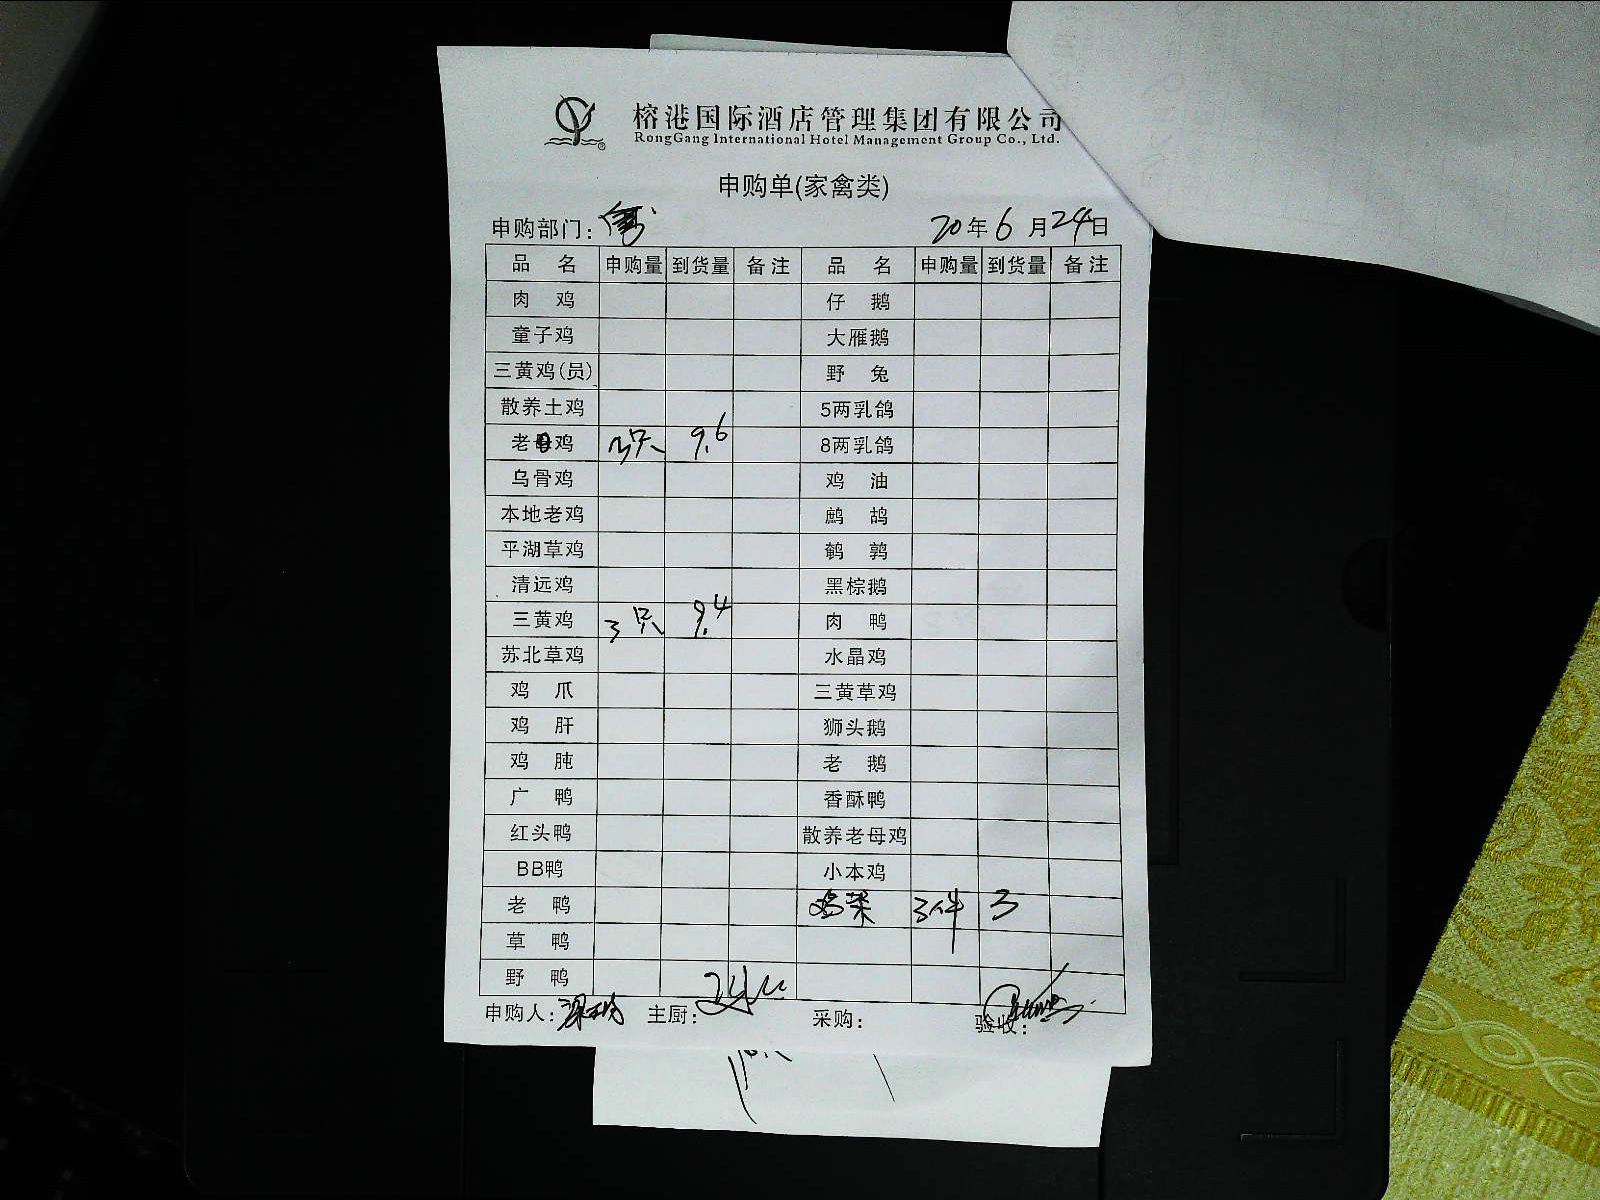 榕港国际酒店管理集团有限公司
RongGang International Hotel Management Group Co., Ltd.
申购单(家禽类)
申购部门: 20年6月24日
品 名 申购量 到货量 备注 品 名 申购量 到货量 备注
肉 鸡 仔 鹅
童子鸡 大雁鹅
三黄鸡(员) 野 兔
散养土鸡 5两乳鸽
老母鸡 3只 9.6 8两乳鸽
乌骨鸡 鸡 油
本地老鸡 鹧 鸪
平湖草鸡 鹌 鹑
清远鸡 黑棕鹅
三黄鸡 3只 9.4 肉 鸭
苏北草鸡 水晶鸡
鸡 爪 三黄草鸡
鸡 肝 狮头鹅
鸡 肫 老 鹅
广 鸭 香酥鸭
红头鸭 散养老母鸡
BB鸭 小本鸡
老 鸭 3件 3
草 鸭
野 鸭
申购人: 主厨: 采购: 验收: